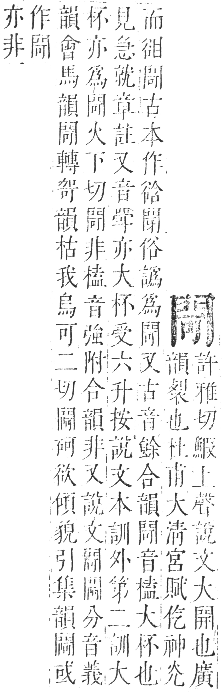 閜
許雅切鰕上聲說文大開也廣
韻裂也杜甫大清宮賦仡神光
而閜古本作谽閜俗譌爲閜又古音餘合韻閜音榼大杯也
見急就章註又音斝亦大杯受六升按說文本訓外第二訓大
杯亦爲閜火下切閜非榼音強附合韻非又說文閜分音義
韻會馬韻閜轉哿韻枯我烏可二切閜砢欲傾貌引集韻閜或
作閜
亦非